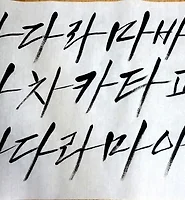 다라마바
차카타파
다라마아